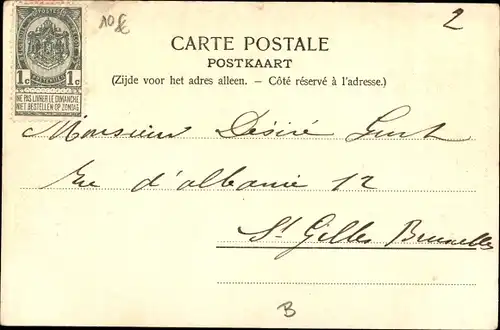 10€
2
1c 1c
NE PAS LIVRER LE DIMANCHE
NIET BESTELLEN OP ZONDAG
CARTE POSTALE
POSTKAART
(Zijde voor het adres alleen. – Côté réservé à l'adresse.)
Monsieur Désiré
Rue d'albanie 12
St Gilles Bruxelles
B